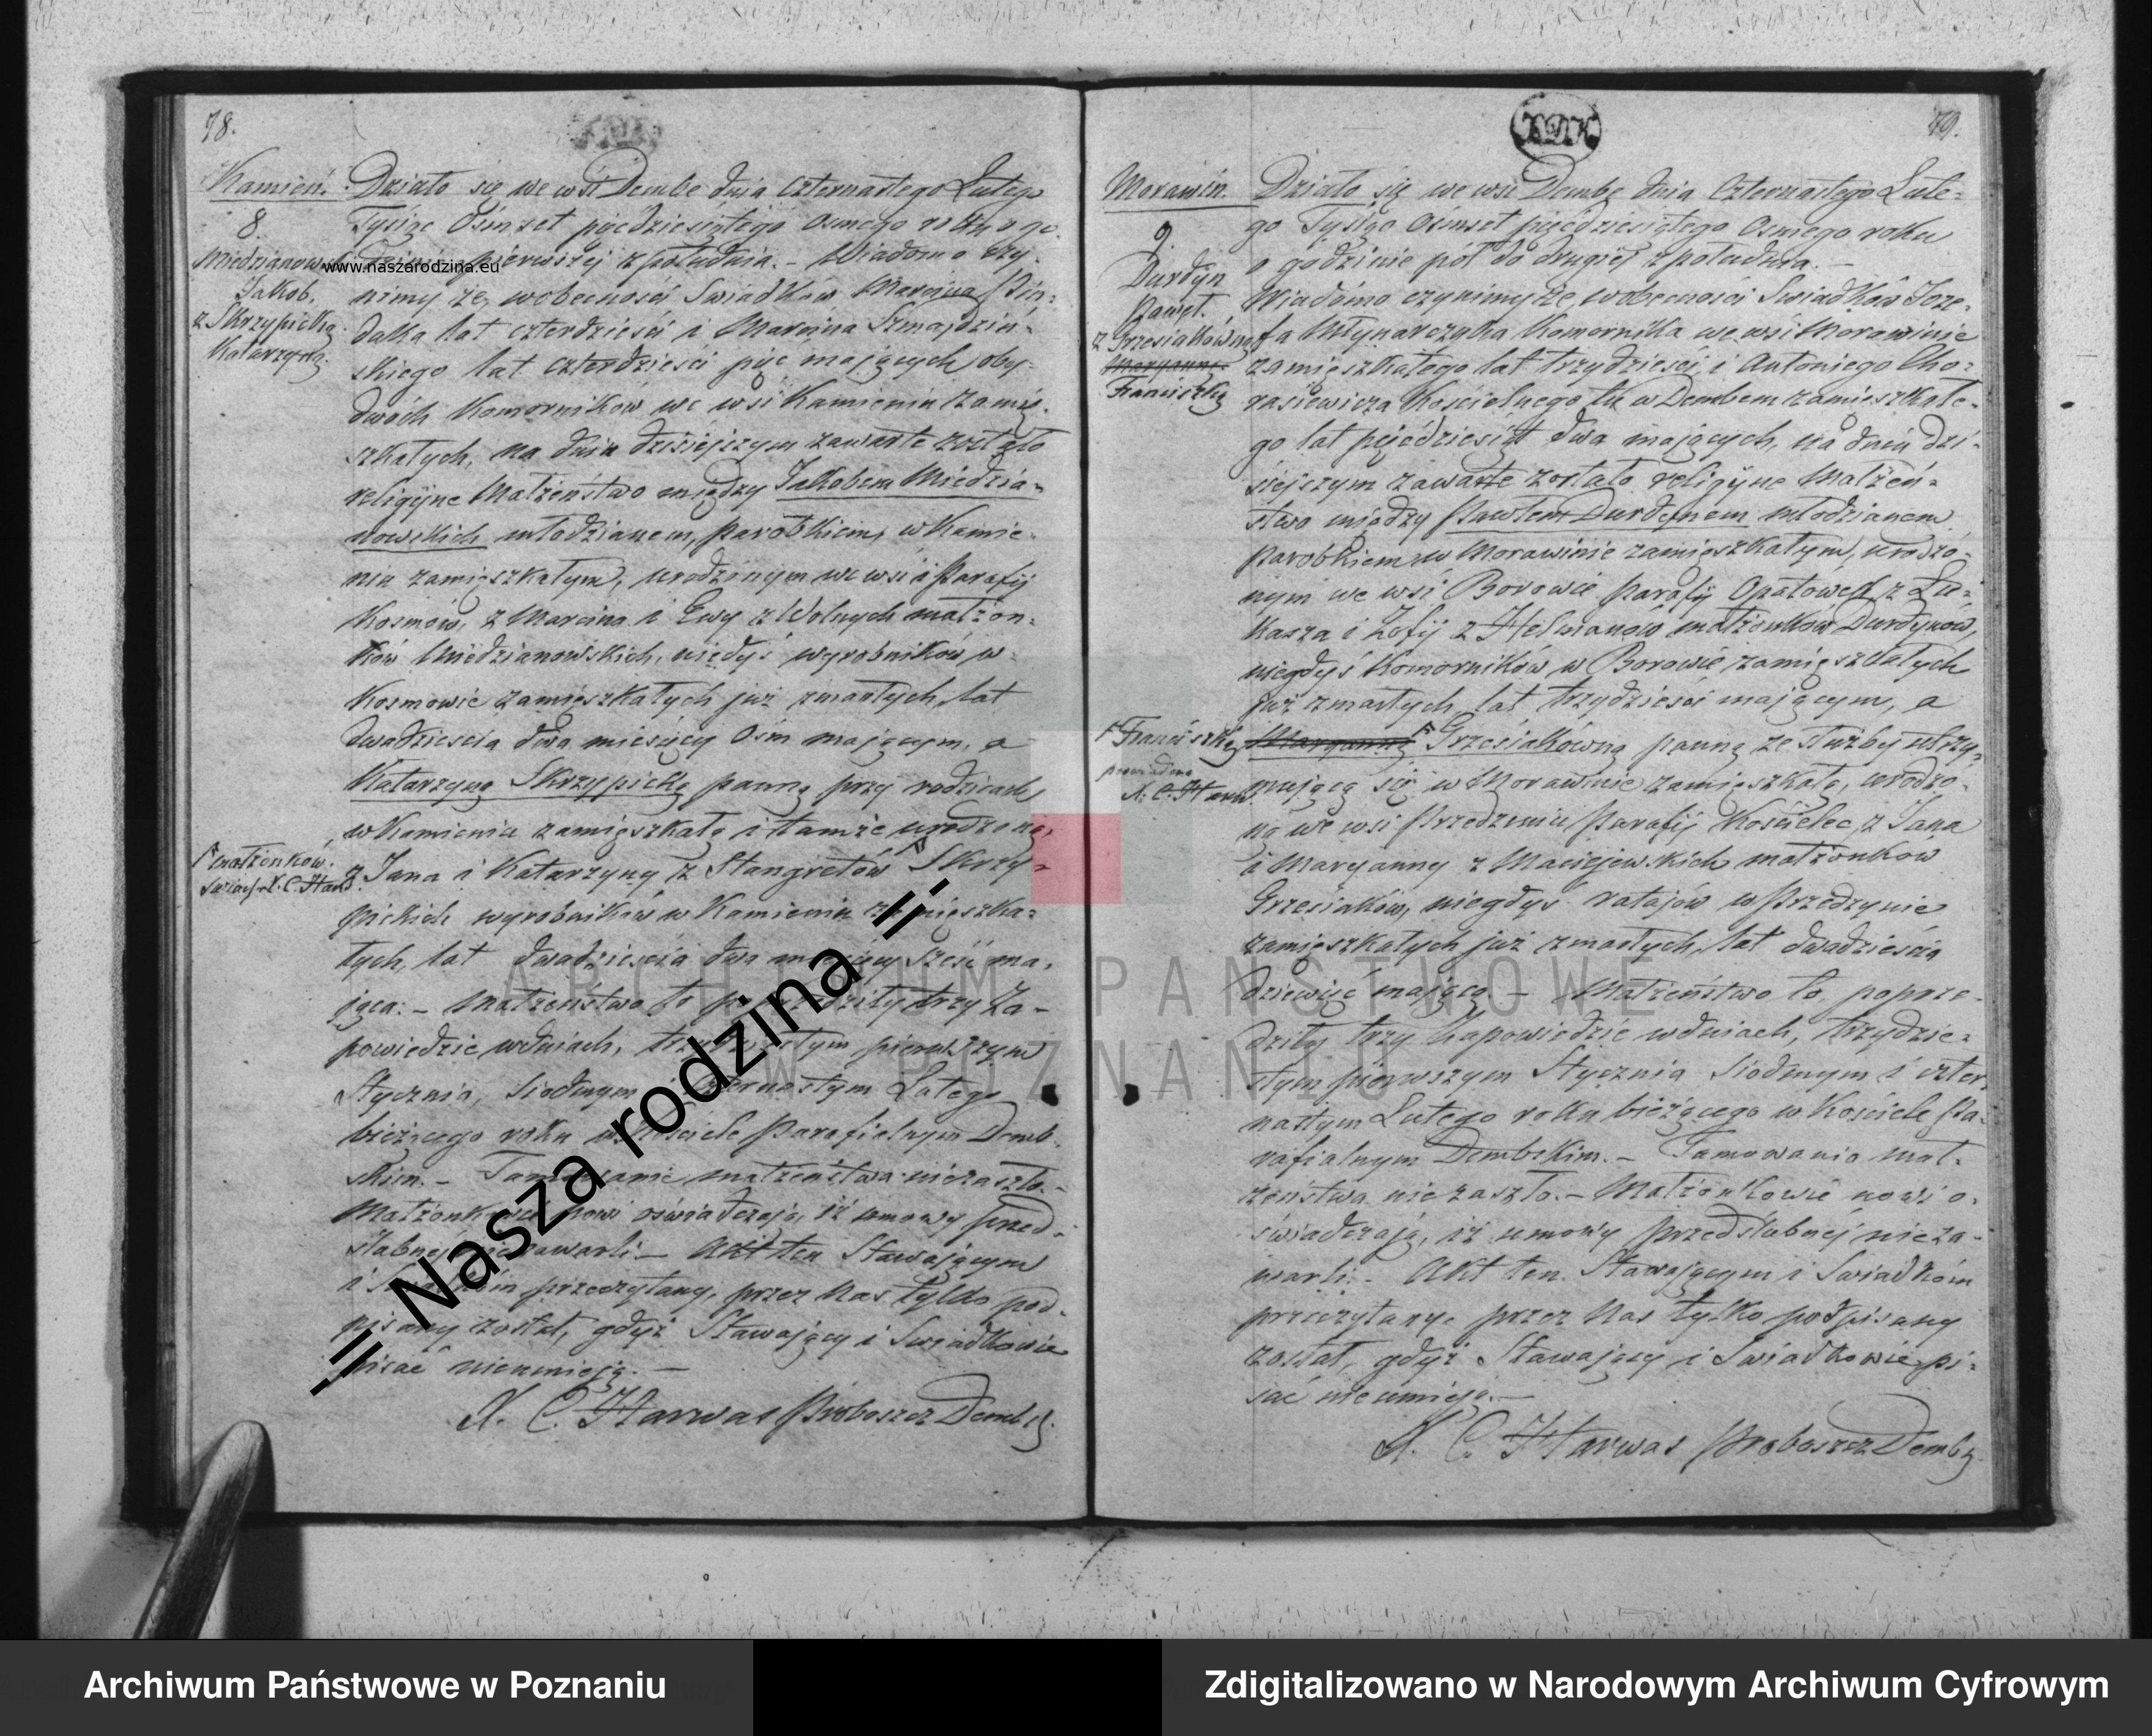 78.
Kamień.
8.
Miedzianowski
Jakób,
z Skrzypicką
Katarzyną.
Działo się we wsi Dembe dnia czternastego Lutego
Tysiąc Ośmset pięćdziesiątego osmego roku o go-
dzinie pierwszej z południa. – Wiadomo czy-
nimy że, w obecności Swiadków Marcina
lat czterdzieści i Marcina Szmajdziń-
skiego lat czterdzieści pięć mających oby-
dwóch Komorników we wsi Kamieniu zamię-
szkałych, na dniu dzisiejszym zawarte zostało
religijne Małżeństwo między Jakobem Miedzia-
nowskich młodzianem, parobkiem, w Kamie-
niu zamięszkałym, urodzonym we wsi i Parafij
Kosmów, z Marcina i Ewy z Wolnych małżon-
ków Miedzianowskich, niegdyś wyrobników w
Kosmowie zamięszkałych już zmarłych, lat
dwadzieścia dwa miesięcy Ośm mającym, a
Katarzyną Skrzypicką panną przy rodzicach
w Kamieniu zamięszkałą i tamże urodzoną,
małżonków.
X. C. Harw.
z Jana i Katarzyny z Stangretów Skrzy-
pickich wyrobników w Kamieniu zamięszka-
łych, lat dwadzieścia dwa miesięcy sześć ma-
jącą: – Małżeństwo to poprzedziły trzy Za-
powiedzie w dniach, trzydziestym pierwszym
Stycznia, Siodmym i Czternastym Lutego
bieżącego roku w Kościele Parafialnym Demb-
skim. – Tamowanie małżeństwa niezaszło. –
Małżonkowie nowi oświadczają, iż umowy przed-
ślubnej niezawarli – Akt ten Stawającym
i Swiadkóm przeczytany, przez Nas tylko pod-
pisany został, gdyż Stawający i Swiadkowie
pisać nieumieją. –
X. C. Harwas Proboszcz Dembs.
79.
Morawin.
9.
Durdyn
Paweł.
z Grzesiakówną
Maryanną
Franciszką
Działo się we wsi Dembe dnia czternastego Lute-
go Tysiąc Ośmset pięćdziesiątego Osmego roku
o godzinie pół do drugiej z południa. –
Wiadomo czynimy że, w obecności Swiadków Joze-
fa Młynarczyka Komornika we wsi Morawinie
zamięszkałego lat trzydzieści, i Antoniego Cho-
rasiewicza Kościelnego tu w Dembem zamieszkałe-
go lat pięćdziesiąt dwa mających, na dniu dzi-
siejszym zawarte zostało religijne Małżeń-
stwo między Pawłem Durdynem młodzianem
Parobkiem w Morawinie zamięszkałym, urodzo-
nym we wsi Borowie parafij Opatowek z Łu-
kasza i Zofij z Helmanów małżonków Durdynów,
niegdyś Komorników w Borowie zamięszkałych
już zmarłych, lat trzydzieści mającym, a
Franciszką
X. C. Harw.
Maryanną Grzesiakówną panną ze służby utrzy-
mującą się w Morawinie zamięszkałą, urodzo-
ną we wsi Przedzeniu Parafij Kościelec, z Jana
i Maryanny z Maciejewskich małżonków
Grzesiaków, niegdyś ratajów w Przedzynie
zamięszkałych już zmarłych, lat dwadzieścia
dziewięć mającą. – Małżeństwo to poprze-
dziły trzy Zapowiedzie w dniach, trzydzie-
stym pierwszym Stycznia Siodmym i czter-
nastym Lutego roku bieżącego w Kościele Pa-
rafialnym Dembskim. – Tamowania mał-
żeństwa niezaszło. – Małżonkowie nowi o-
świadczają, iż umowy przedślubnej nieza-
warli. – Akt ten Stawającym i Swiadkóm
przeczytany, przez Nas tylko podpisany
został, gdyż Stawający i Swiadkowie pi-
sać nieumieją. –
X. C. Harwas Proboszcz Dembs.
www.naszarodzina.eu
-= Nasza rodzina =-
ARCHIWUM PAŃSTWOWE
W POZNANIU
Archiwum Państwowe w Poznaniu
Zdigitalizowano w Narodowym Archiwum Cyfrowym